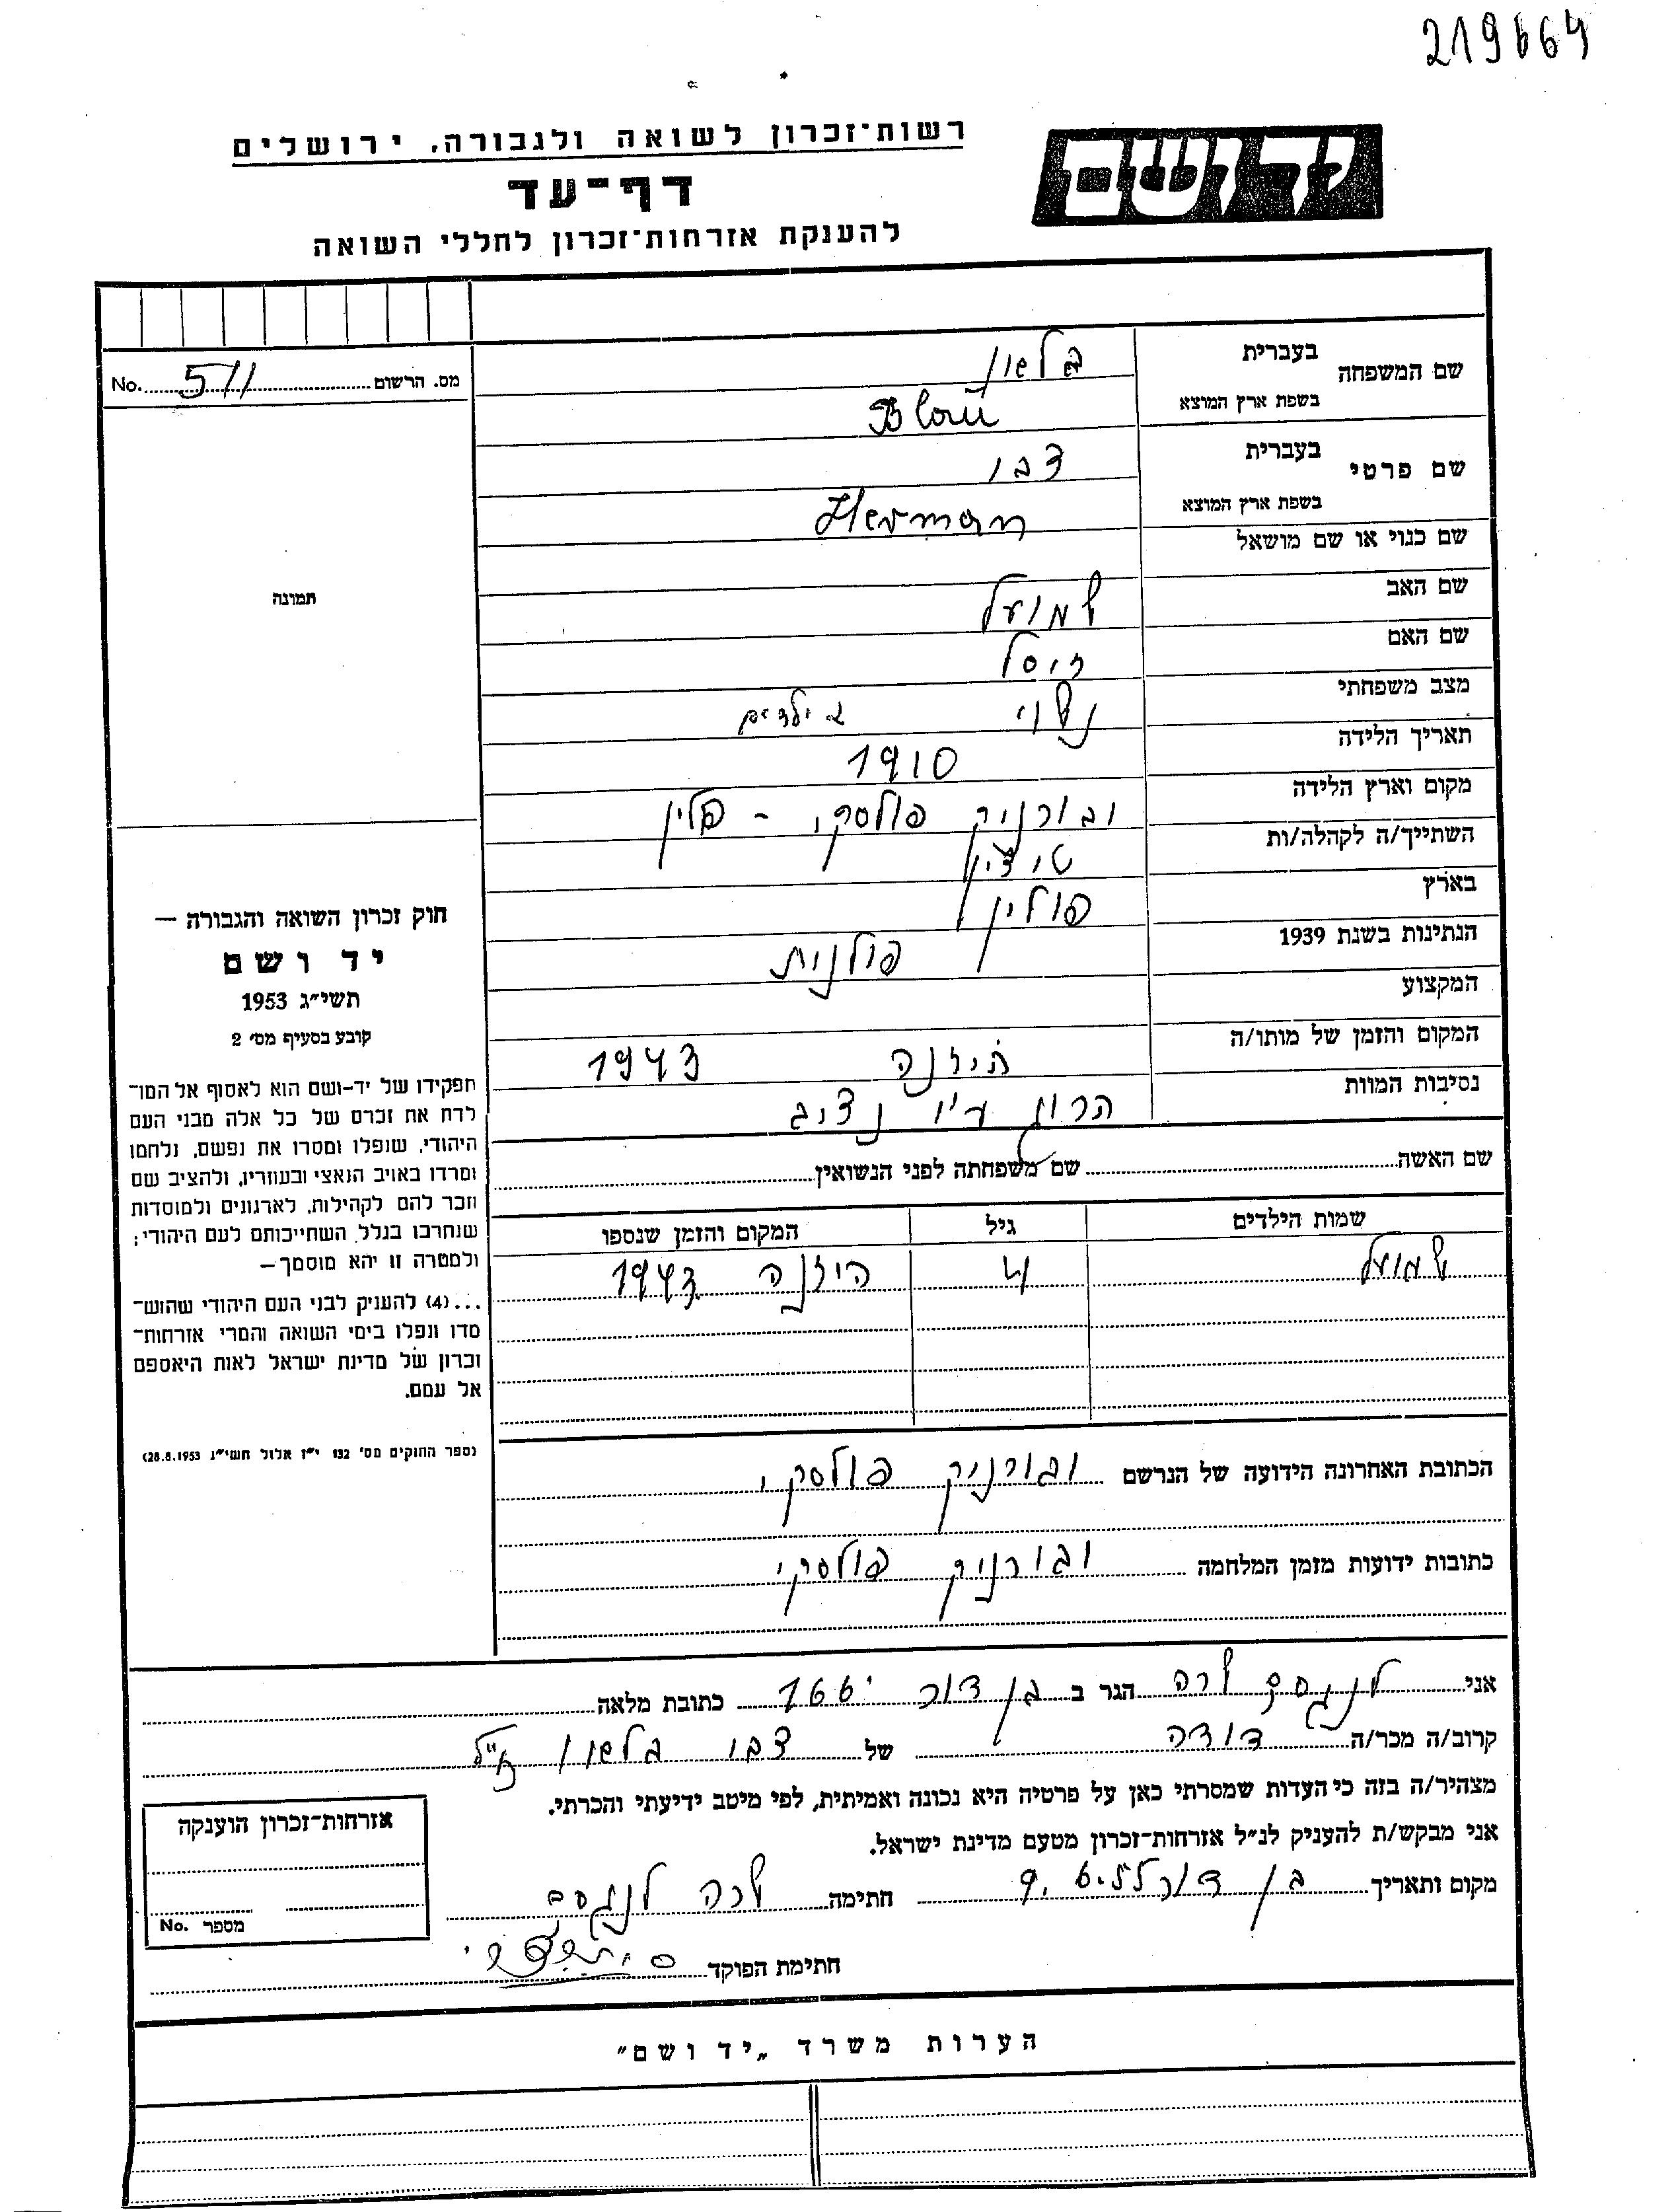 219664
רשות־זכרון לשואה ולגבורה, ירושלים
יד ושם
דף־עד
להענקת אזרחות־זכרון לחללי השואה
מס. הרשום 511 No.
שם המשפחה
בעברית
בשפת ארץ המוצא
Blaü
שם פרטי
בעברית צבי
בשפת ארץ המוצא Herman
שם כנוי או שם מושאל
תמונה
שם האב שמואל
שם האם
מצב משפחתי נשוי ילדים
תאריך הלידה 1910
מקום וארץ הלידה פולסקי - פולין
השתייך/ה לקהלה/ות
בארץ פולין
הנתינות בשנת 1939 פולנית
המקצוע
המקום והזמן של מותו/ה 1943
נסיבות המוות הרוג ע"י
שם האשה שם משפחתה לפני הנשואין
שמות הילדים גיל המקום והזמן שנספו
שמואל 4 1943
הכתובת האחרונה הידועה של הנרשם פולסקי
כתובות ידועות מזמן המלחמה פולסקי
חוק זכרון השואה והגבורה —
יד ושם
תשי״ג 1953
קובע בסעיף מס׳ 2
תפקידו של יד־ושם הוא לאסוף אל המו־
לדת את זכרם של כל אלה מבני העם
היהודי, שנפלו ומסרו את נפשם, נלחמו
ומרדו באויב הנאצי ובעוזריו, ולהציב שם
וזכר להם לקהילות, לארגונים ולמוסדות
שנחרבו בגלל השתייכותם לעם היהודי;
ולמטרה זו יהא מוסמך—
...(4) להעניק לבני העם היהודי שהוש־
מדו ונפלו בימי השואה והמרי אזרחות־
זכרון של מדינת ישראל לאות היאספם
אל עמם.
(ספר החוקים מס׳ 132 י״ז אלול תשי״ג 28.8.1953)
אני שרה הגר ב בן דור 166 כתובת מלאה
קרוב/ה מכר/ה דודה של צבי ז"ל
מצהיר/ה בזה כי העדות שמסרתי כאן על פרטיה היא נכונה ואמיתית, לפי מיטב ידיעתי והכרתי.
אני מבקש/ת להעניק לנ״ל אזרחות־זכרון מטעם מדינת ישראל.
מקום ותאריך בן דור חתימה שרה
חתימת הפוקד
אזרחות־זכרון הוענקה
מספר No.
הערות משרד „יד ושם״